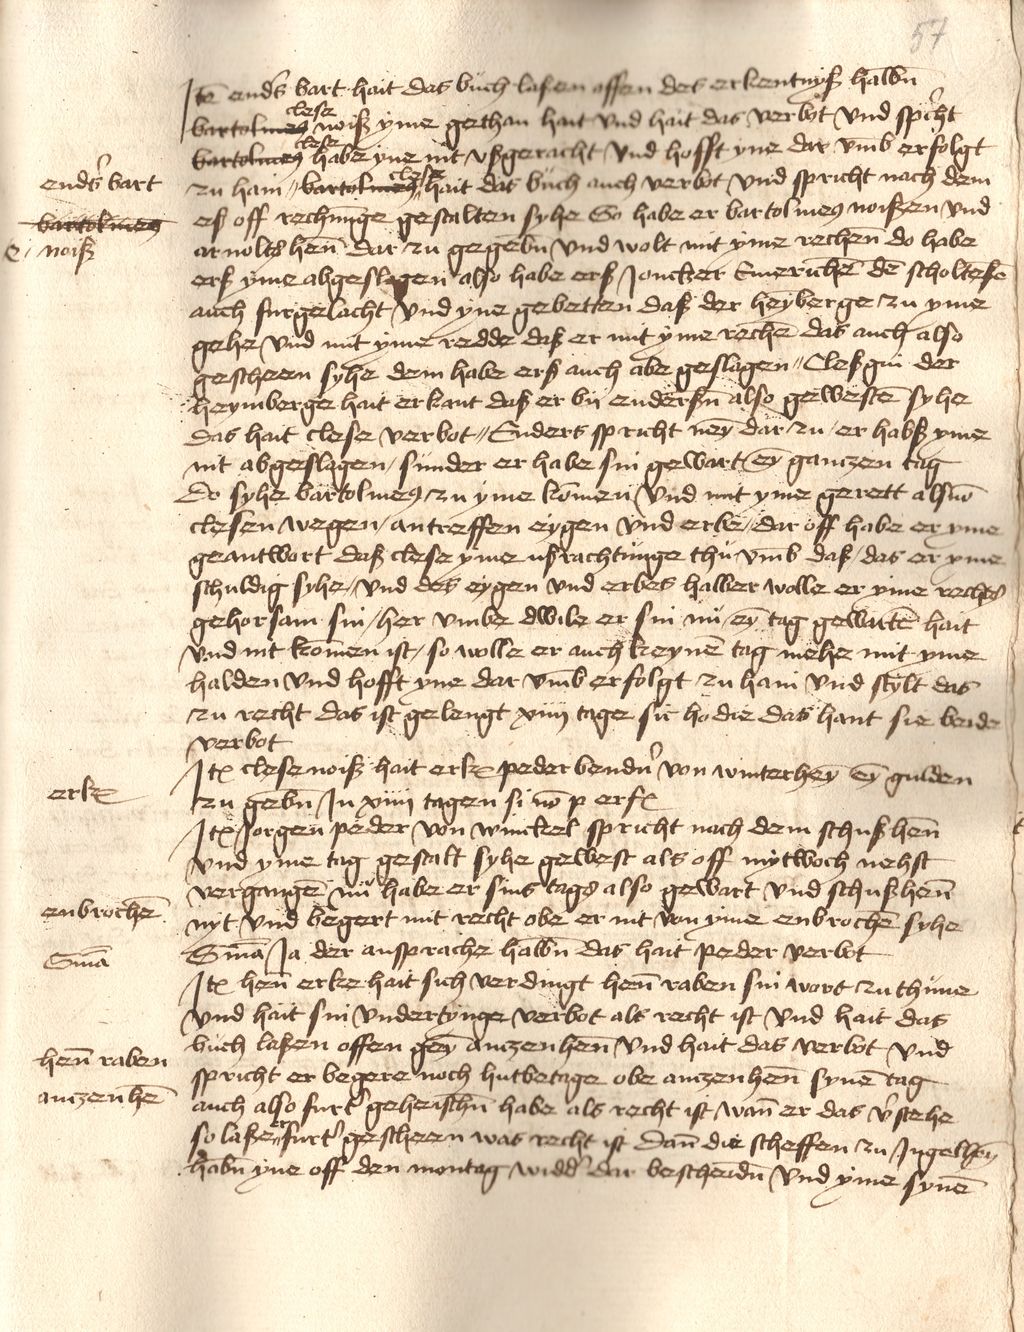 57
Itē enders bart hait das buch laßen offen des erkentniß halbñ
clese
bartolmeꝯ noiß yme gethan hait vnd hait das verbot vnd spricht
clese
bartolmeꝯ habe yne nit vßgeracht vnd hofft yne dar vmb erfolgt
clese
zu hain / bartolmeꝯ hait das buch auch verbot vnd spricht nach dem
enders bart
eß off rechnuge gestalten syhe So habe er bartolmeꝯ noißen vnd
bartolmeꝯ
C. noiß
arnolts heñ dar zu gegebñ vnd wolt mit yme rechen do habe
erß yme abgeslagen also habe erß Jonckzer Emerichē dē scholteße
auch furgelacht vnd yne gebetten daß der heyberge zu yme
gehe vnd mit yme redde daß er mit yme rechē das auch also
gescheen syhe dem habe erß auch abe geslagen // Cleßgin der
heymberge hait erkant daß er by enderßñ also gewestē syhe
das hait clese verbot // Enders spricht ney dar zu / er habß yme
nit abgeslagen / sunder er habe sin gewart ey ganczen tag
Do syhe bartolmeꝯ zu yme komen vnd mit yme gerett alsuo
clesen wegen / antreffen eygen vnd erbe / dar off habe er yme
geantwort daß clese yme ußrachtunge thu vmb daß / das er yme
schuldig syhe / vnd des eygen vnd erbes halber wolle er yme rechts
gehorsam sin / her vmbe dwile er sin nu / ey tag gewartē hait
vnd nit komen ist / so wolle er auch keynē tag mehe mit yme
halden vnd hofft yne dar vmb erfolgt zu hain vnd stylt das
zu recht das ist gelengt xiiij tage sic hodie das hant sie beide
verbot
Itē clese noiß hait erkē peder bendñ von winterhey ey gulden
erkē
zu gebñ In xiiij tagen si nō p erfē
Itē Jorgen peder von winckel spricht nach dem schußheñ
vnd yme tag gestalt syhe gewest als off mytwoch nehst
vergangē nu habe er sins tags also gewart vnd schußheñ
enbrochē
nyt vnd begert mit recht obe er nit von yme enbrochē syhe
Smā
Smā Ja der ansprache halbñ das hait peder verbot
Itē heñ erke hait sich verdingt heñ raben sin wort zu thune
vnd hait sin vndertynge verbot als recht ist vnd hait das
buch laßen offen gey anczenheñ vnd hait das verbot vnd
heñ raben
spricht er begere noch hutbetage obe anczenheñ synē tag
anczenhē
auch also furt geheischñ habe als recht ist wañ er das v̉stehe
so laße er furt gescheen was recht ist dañ die scheffen zu Ingelheȳ
habñ yne off den montag widd' dar bescheidñ vnd yme synē